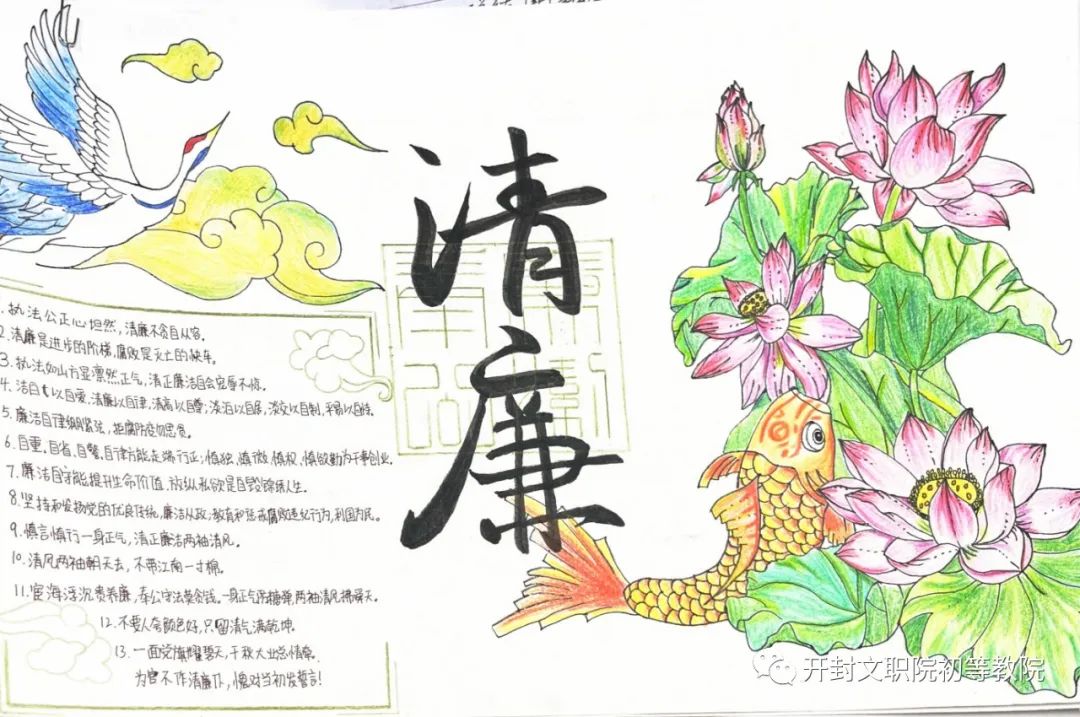 清廉
1. 执法公正心坦然,清廉不贪自从容。
2. 清廉是进步的阶梯,腐败是灭亡的快车。
3. 执法如山方显凛然正气,清正廉洁自会宠辱不惊。
4. 洁白以自爱,清廉以自律,清高以自尊;淡泊以自居,淡交以自制,平易以自持。
5. 廉洁自律绷紧弦,拒腐防变勿思贪。
6. 自重、自省、自警、自律方能走端行正;慎独、慎微、慎权、慎欲勤为干事创业。
7. 廉洁自守能提升生命价值,放纵私欲是自毁锦绣人生。
8. 坚持和发扬党的优良传统,廉洁从政;教育和惩戒腐败违纪行为,利国为民。
9. 慎言慎行一身正气,清正廉洁两袖清风。
10. 清风两袖朝天去,不带江南一寸棉。
11. 宦海浮沉贵养廉,奉公守法莫贪钱。一身正气弹,两袖清风拂尘天。
12. 不要人夸颜色好,只留清气满乾坤。
13. 一面党旗耀碧天,千秋大业总情牵。
为官不作清廉仆,愧对当初发誓言!
开封文职院初等教院